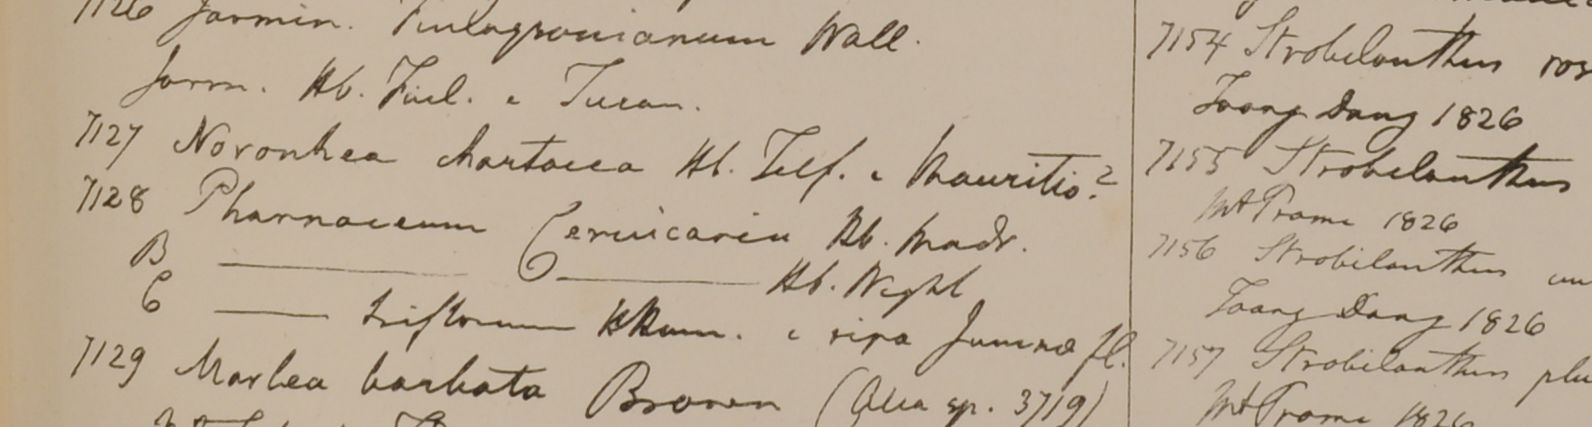 7126 Jasmin. Finlaysonianum Wall.
Jasm. Hb. Finl. e Turan.
7127 Noronhea chartacea Hb. Telf. e Mauritio?
7128 Pharnaceum Cerviearia Hb. Madr.
B ——— Hb. Wight
C ——— triflorum HBHam. e ripa Jumnae fl.
7129 Marlea barbata Brown (Alia sp. 3719)
7154 Strobilanthus
Taong Dang 1826
7155 Strobilanthus
Mt Prome 1826
7156 Strobilanthus
Taong Dang 1826
7157 Strobilanthus
Mt Prome 1826